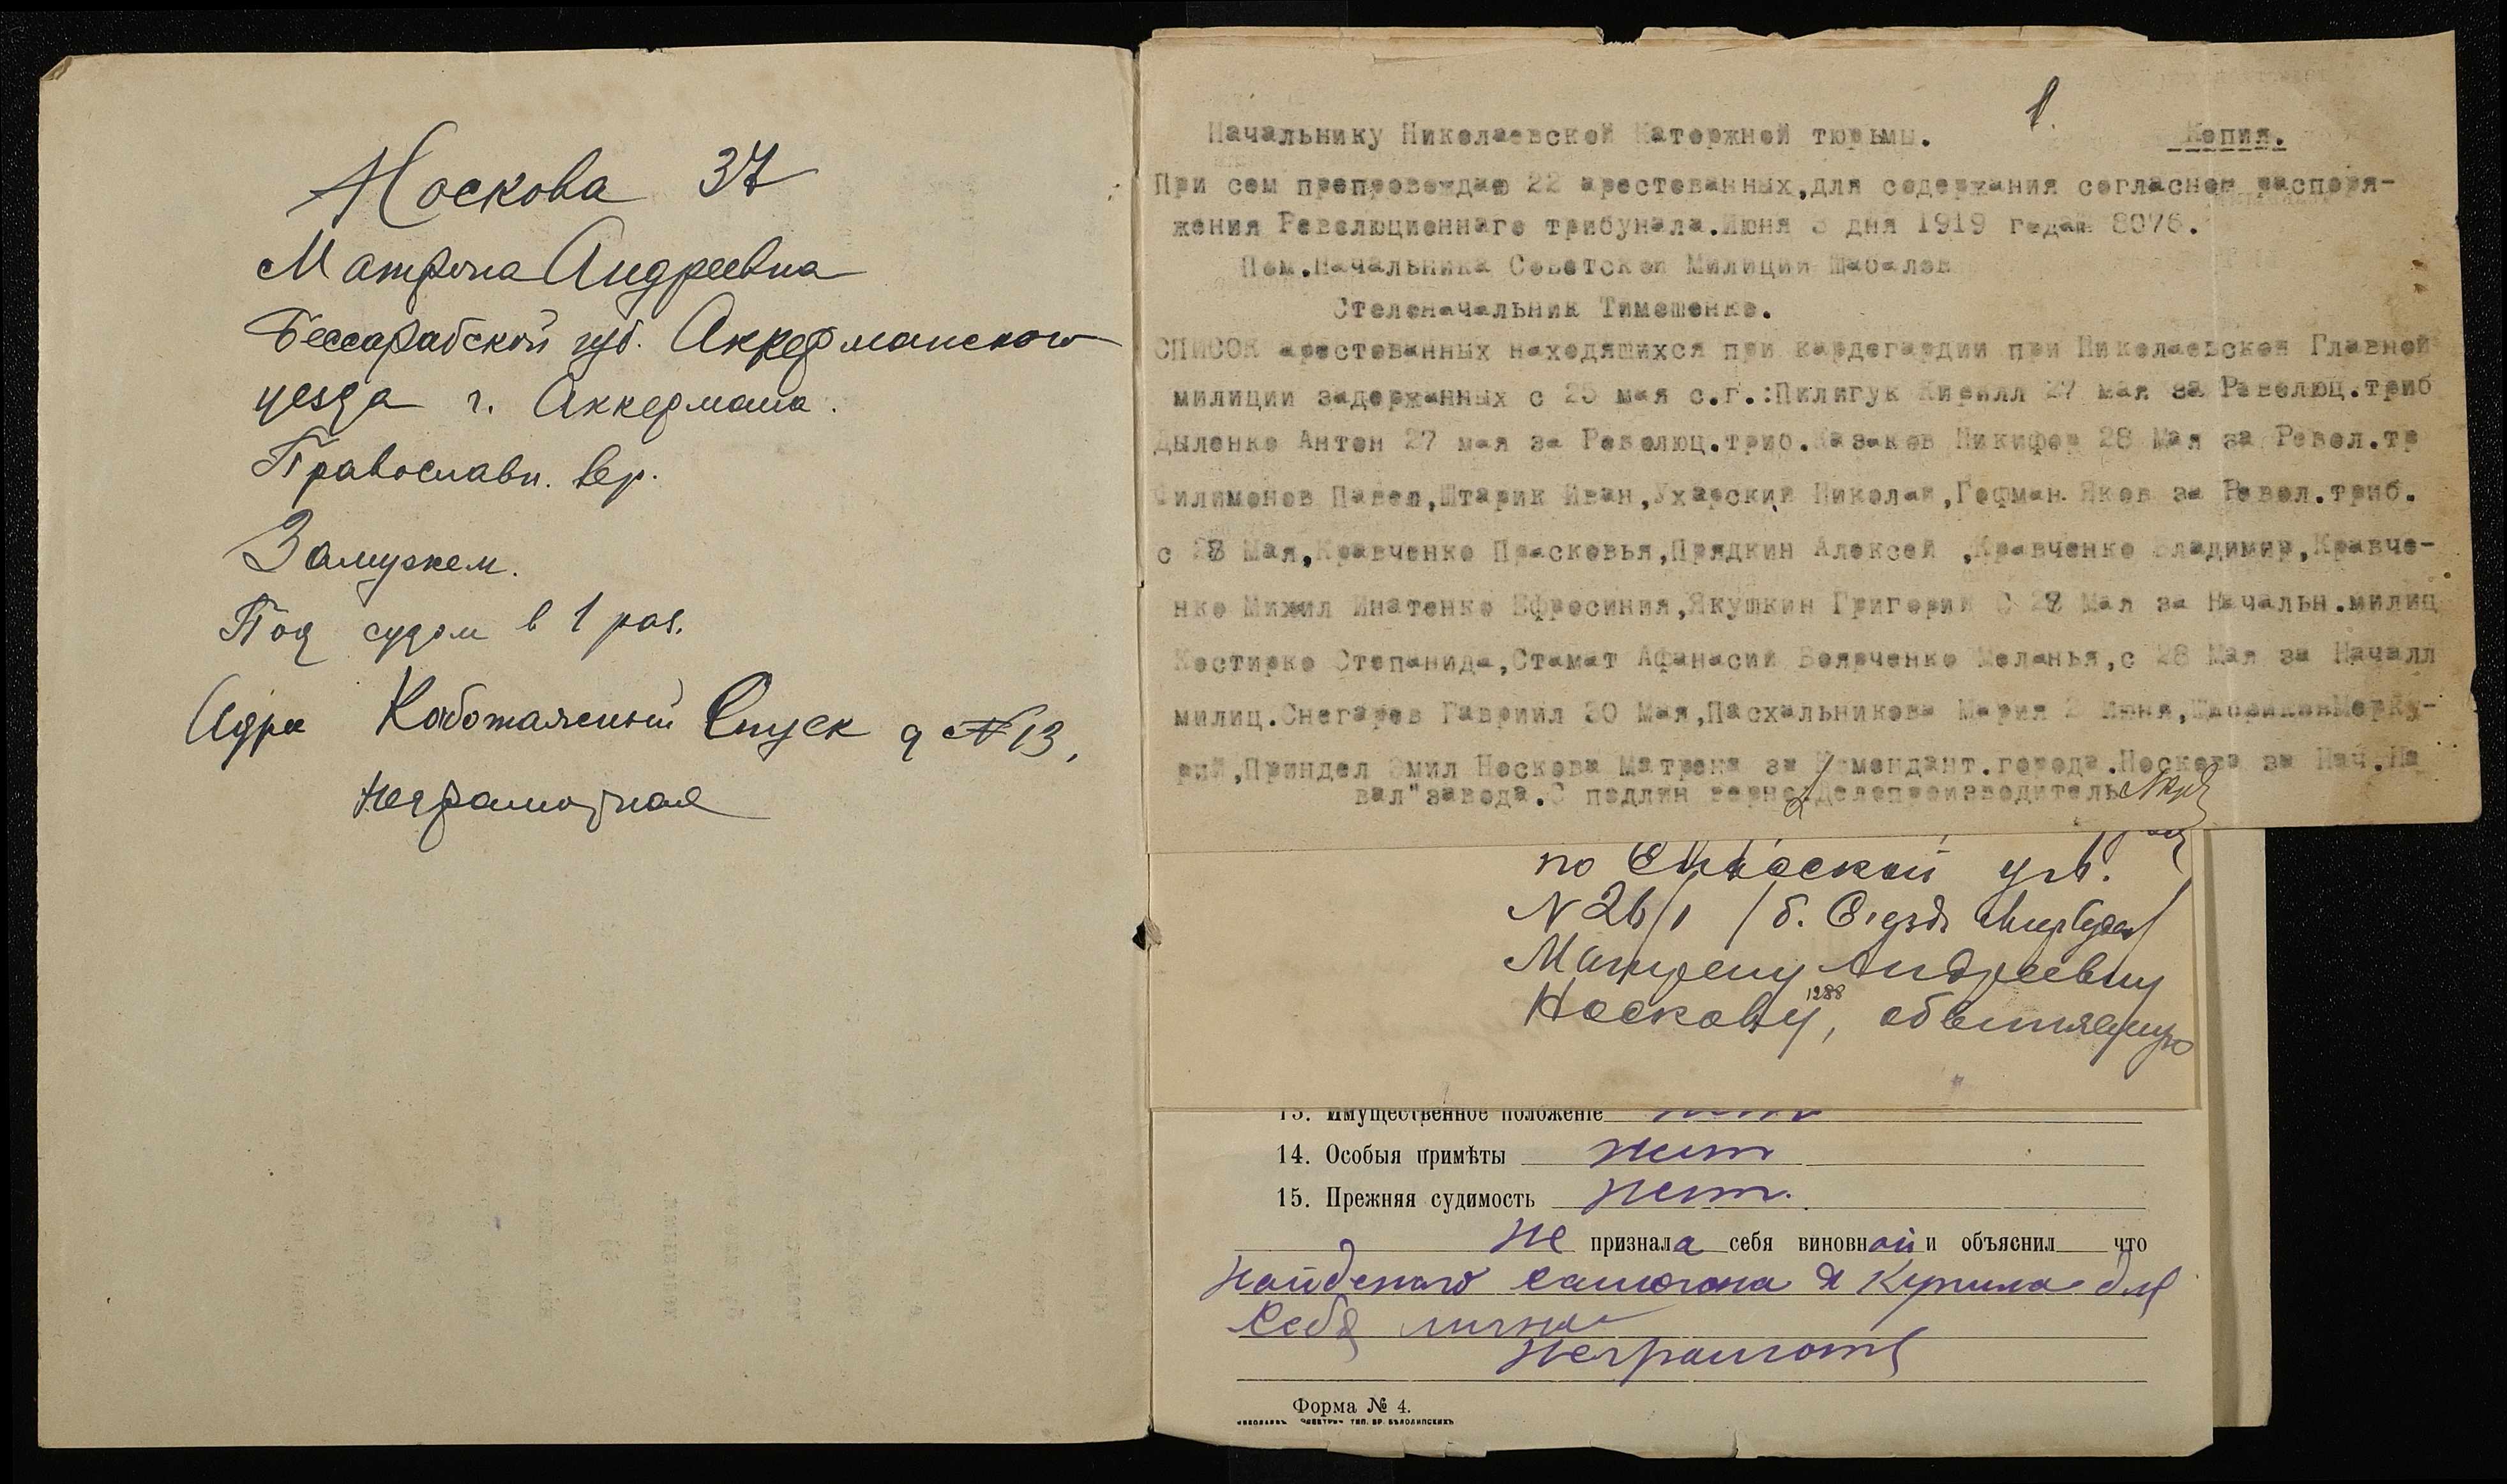 Носкова 37
Матрона Андреевна
Бессарабской губ. Аккерманского
уезда г. Аккермана.
Православн. вер.
Замужем.
Под судом в 1 раз.
Адре Каботажный Спуск д №13,
Неграмотная
1.
Начальнику Николаевской Каторжной тюрьмы. Копия.
При сем препровождаю 22 арестованных,для содержания согласное распоря-
жения Революционнаго трибунала.Июня 3 дня 1919 года№ 8076.
Пом.Начальника Советской Милиции Шабалов
Столоначальник Тимошенко.
СПИСОК арестованных находящихся при кардегардии при Николаевской Главной
милиции задержанных с 25 мая с.г.:Пилигук Кирилл 27 мая за Революц.триб
Дыленко Антон 27 мая за Революц.триб.Казаков Никифор 28 Мая за Револ.тр
Филимонов Павел,Штарик Иван,Ухарский Николай,Гофман Яков за Револ.триб.
с 28 Мая,Кравченко Прасковья,Прядкин Алексей ,Кравченко Владимир,Кравче-
нко Михаил Инатенко Ефросиния,Якушкин Григорий С 28 Мая за Начальн.милиц
Костирко Степанида,Стамат Афанасий Боярченко Меланья,с 28 Мая за Началл
милиц.Снегарев Гавриил 30 Мая,Пасхальникова Мария 2 Июня, Мерку-
рий,Приндел Эмил Носкова Матрена за Комендант.города.Носкова за Нач.На
вал"завода.С подлин верно:Делопроизводитель
по Спасской ул.
N 26/1 /б. Съезд Мир. Судей/
Матрену Андреевну
1288
Носкову, обвиняемую
13. Имущественное положенiе нет
14. Особыя примѣты нет
15. Прежняя судимость нет.
не признала себя виновной и объяснил что
найденого самогона я купила для
себя лично
Неграмотн
Форма № 4.